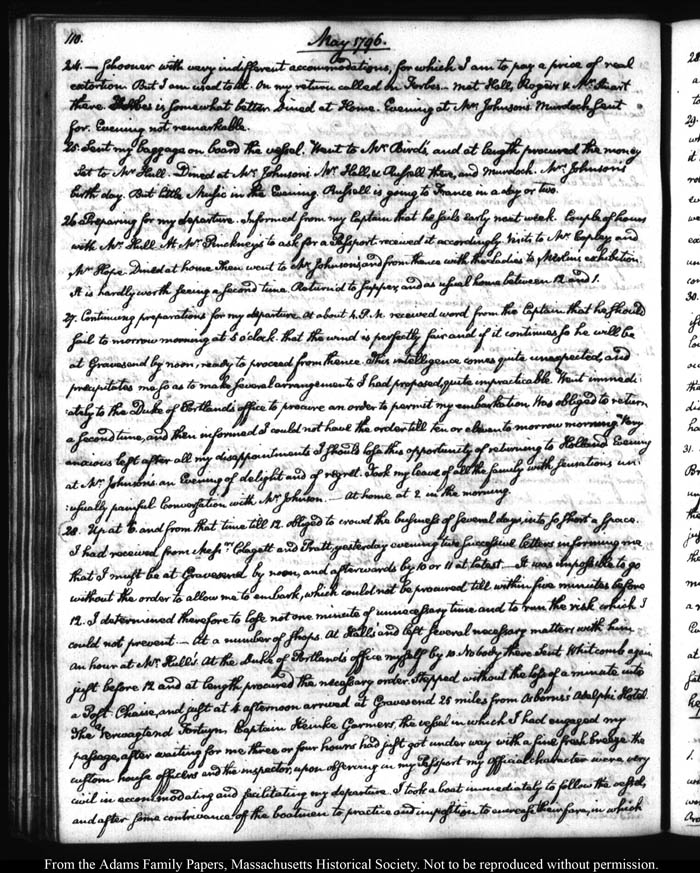 110.
May 1796.
24. — Schooner with very indifferent accommodations, for which I am to pay a price of real
extortion. But I am used to it. On my return called in Forbes — met Hall, Rogers & Mr. Stuart
there. Forbes is somewhat better. Dined at Home. Evening at Mrs Johnsons Murdock sent
for. Evening not remarkable.
25. Sent my baggage on board the vessel. Went to Mr. Bird's, and at length procured the money
Sat to Mr Hull. Dined at Mr. Johnson's Mr. Hall & Russell there, and Murdock. Mr. Johnson's
birth day. But little Music in the Evening. Russell is going to France in a day or two.
26. Preparing for my departure. Informed from my Captain that he sails early next week. Couple of hours
with Mr. Hall. At Mr. Pinckney's to ask for a Passport received it accordingly. Visits to Mr. Copley and
Mr Hope. Dined at home. Then went to Mr. Johnson's and from thence with the Ladies to Merlins exhibition.
It is hardly worth seeing a second time. Return'd to supper, and as usual home between 12 and 1.
27. Continuing preparations for my departure. At about 4. P.M. received word from the Captain that he should
sail to morrow morning at 5 o'clock. that the wind is perfectly fair and if it continues so he will be
at Gravesend by noon, ready to proceed from thence. This intelligence comes quite unexpected, and
precipitates me so as to make several arrangements I had proposed, quite impracticable. Went immedi-
:ately to the Duke of Portland's office to procure an order to permit my embarkation. Was obliged to return
a second time, and then informed I could not have the order till ten or eleven to morrow morning. Very
anxious lest after all my disappointments I should lose this opportunity of returning to Holland. Evening
at Mr. Johnson's. an Evening of delight and of regret. Took my leave of all the family with sensations un-
:usually painful. Conversation with Mr. Johnson. — At home at 2 in the morning.
28. Up at 6. and from that time till 12. obliged to crowd the business of several days into so short a space.
I had received from Messrs. Clagett and Pratt, yesterday evening two successive letters informing me
that I must be at Gravesend by noon, and afterwards by 10 or 11 at latest. — It was impossible to go
without the order to allow me to embark, which could not be procured till within five minutes before
12. I determined therefore to lose not one minute of unnecessary time and to run the risk which I
could not prevent. — At a number of shops. At Hall's and left several necessary matters with him
an hour at Mr. Hull's. At the Duke of Portland's office myself by 10. Nobody there. Sent Whitcomb again
just before 12 and at length procured the necessary order. Stepped without the loss of a minute into
a Post Chaise, and just at 4 afternoon arrived at Gravesend 25 miles from Osborne's Adelphi Hotel.
The Verwagtend Fortuyn, Captain Heinke Garmers, the vessel in which I had engaged my
passage, after waiting for me three or four hours had just got under way with a fine fresh breeze. the
custom house officers and the inspector, upon observing in my Passport my official character were very
civil in accommodating and facilitating my departure. I took a boat immediately to follow the vessel,
and after some contrivance of the boatmen to practice and imposition to increase their fare, in which
From the Adams Family Papers, Massachusetts Historical Society. Not to be reproduced without permission.